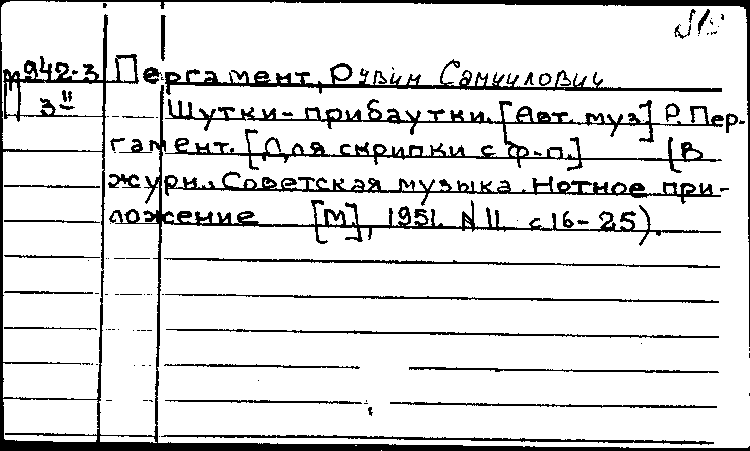 П942-3 Пергамент, Рувим Самуилович
3" Шутки-прибаутки. [Авт. муз] Р. Пер-
гамент. [Для скрипки с ф-п.] [В
журн. Советская музыка. Нотное при-
ложение [М], 1951. N 11. с 16-25).